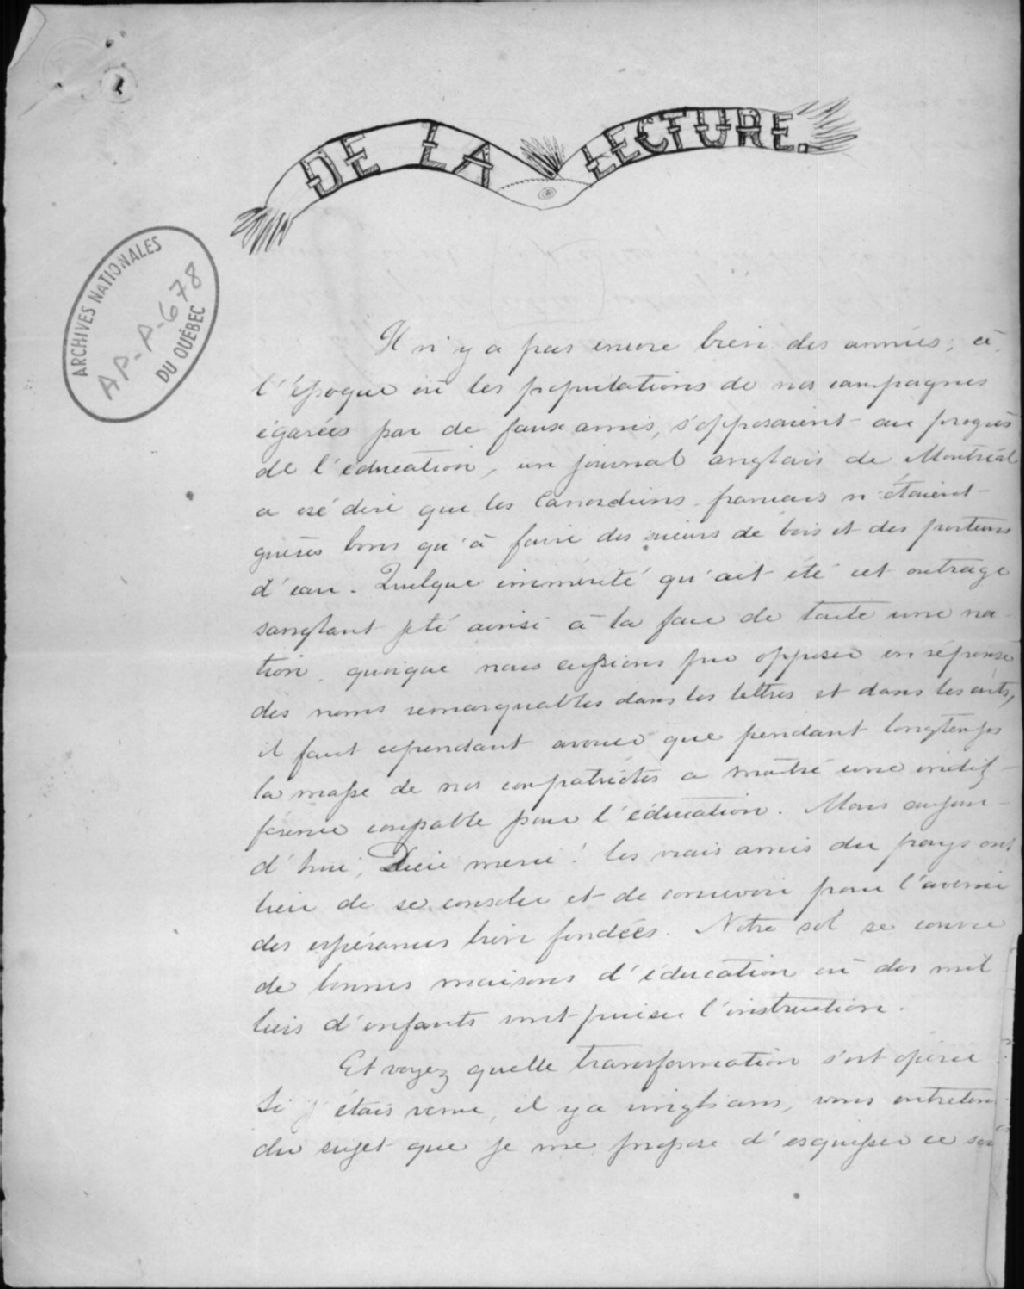 DE LA LECTURE.
ARCHIVES NATIONALES
AP-P-678
DU QUÉBEC
Il n'y a pas encore bien des années, à
l'époque où les populations de nos campagnes
égarées par de faux amis, s'opposaient au progrès
de l'éducation, un journal anglais de Montréal
a osé dire que les Canadiens français n'étaient
guères bons qu'à faire des scieurs de bois et des porteurs
d'eau. Quelque immérité qu'ait été cet outrage
sanglant jeté ainsi à la face de toute une na-
tion, quoique nous eussions pu opposer en réponse
des noms remarquables dans les lettres et dans les arts,
il faut cependant avouer que pendant longtemps
la masse de nos compatriotes a montré une indif-
férence coupable pour l'éducation. Mais aujour-
d'hui, Dieu merci! les vrais amis du pays ont
lieu de se consoler et de concevoir pour l'avenir
des espérances bien fondées. Notre sol se couvre
de bonnes maisons d'éducation où des mil
liers d'enfants vont puiser l'instruction.
Et voyez quelle transformation s'est opérée
Si j'étais venu, il y a vingt ans, vous
du sujet que je me propose d'esquisser ce